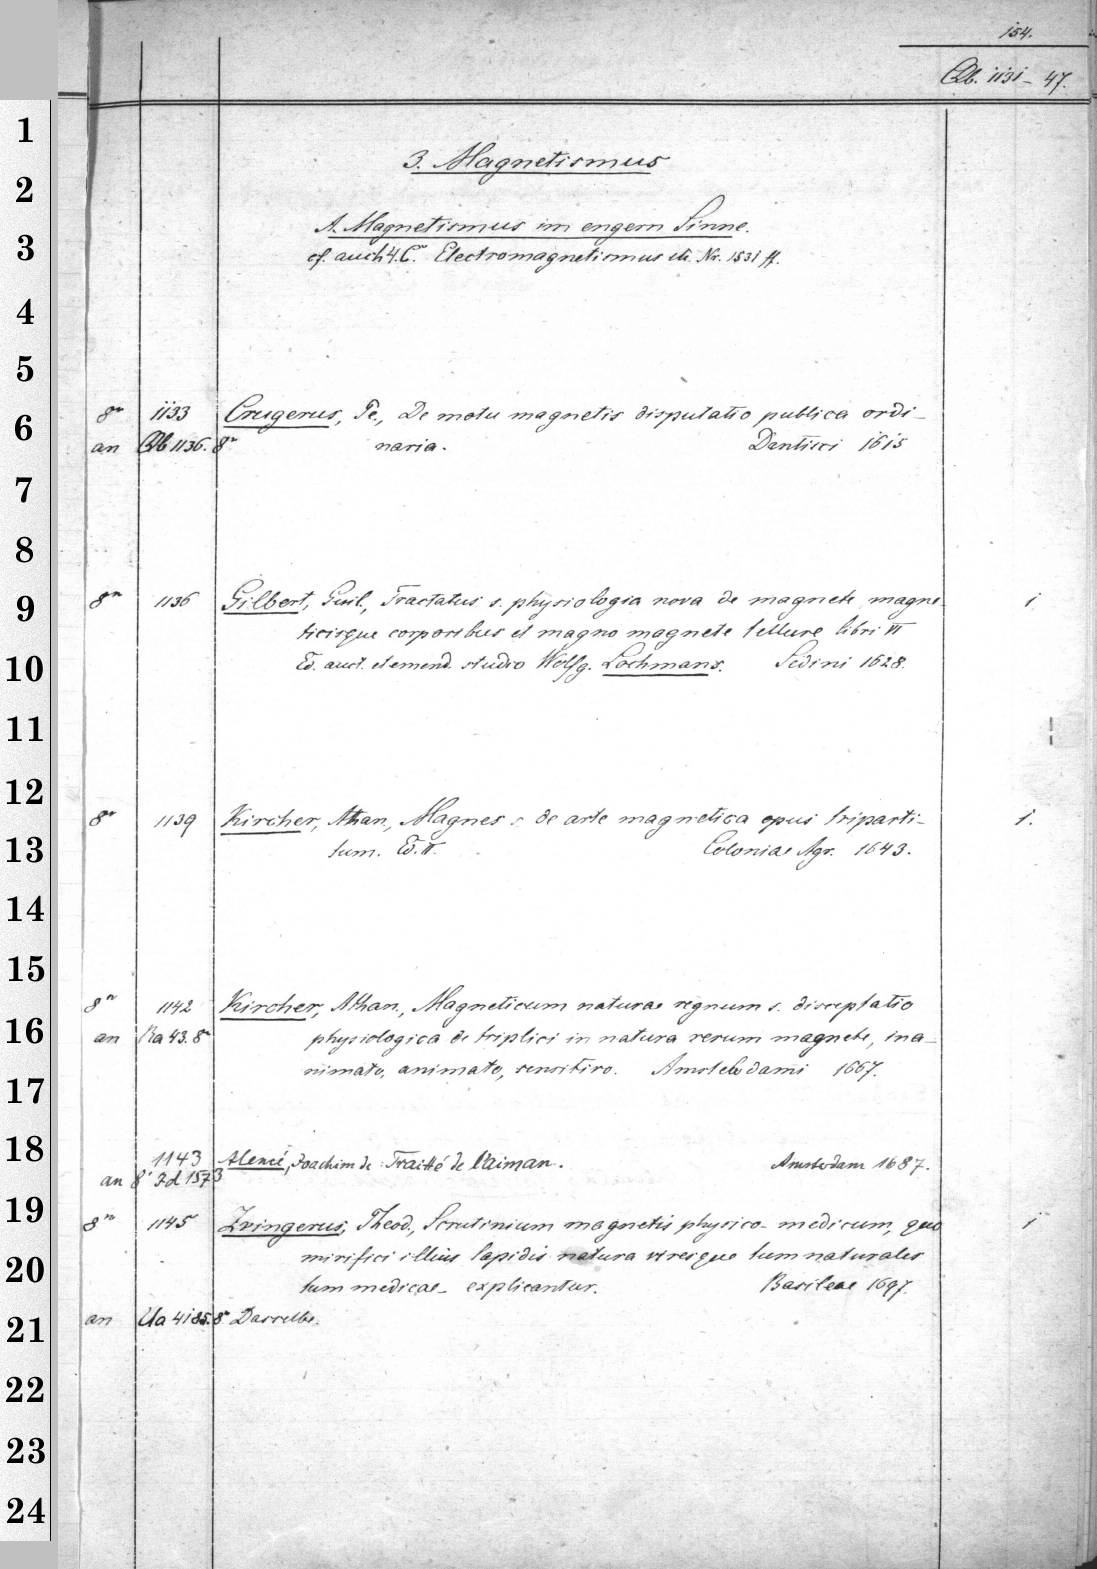 154.
Qb. 1131-47.
3. Magnetismus
A. Magnetismus im engern Sinne.
cf. auch 4.C. Electromagnetismus etc. Nr. 1531 ff.
8° 1133 Crugerus, Pe., De motu magnetis disputatio publica ordi-
an Qb 1136. 8° naria. Dantisci 1615
8° 1136 Gilbert, Guil., Tractatus s. physiologia nova de magnete magne- 1
ticisque corporibus et magno magnete tellure libri VI
Ed. auct. et emend. studio Wolfg. Lochmans. Sedini 1628.
8° 1139 Kircher, Athan., Magnes s. de arte magnetica opus triparti- 1.
tum. Ed. II. Coloniae Agr. 1643.
8° 1142 Kircher, Athan., Magneticum naturae regnum s. disceptatio
an Ra 43. 8° physiologica de triplici in natura rerum magnete, ina-
nimato, animato, sensitivo. Amstelodami 1667.
1143 Alencé, Joachim de: Traitté de l'aiman. Amsterdam 1687.
an 8° 1573
8° 1145 Zvingerus, Theod., Scrutinium magnetis physico-medicum, quo 1
mirifici illius lapidis natura viresque tum naturales
tum medicae explicantur. Basileae 1697.
an Ua 4185. 8° Dasselbe.
1
2
3
4
5
6
7
8
9
10
11
12
13
14
15
16
17
18
19
20
21
22
23
24